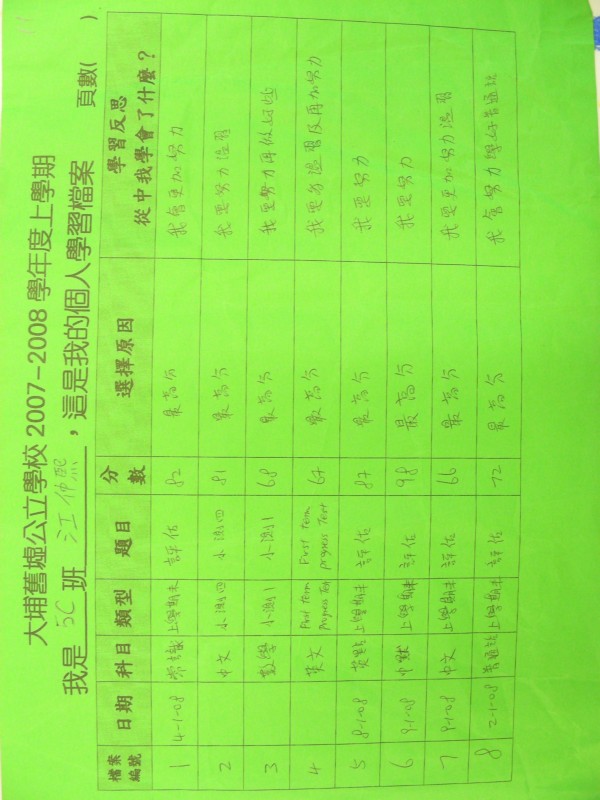 大埔舊墟公立學校 2007-2008 學年度上學期
我是 5C 班 江仲熙 ，這是我的個人學習檔案 頁數( )
檔案編號 日期 科目 類型 題目 分數 選擇原因 學習反思 從中我學會了什麼？
1 4-1-08 常識 上學期末 評估 82 最高分 我會更加努力
2 中文 小測四 小測四 81 最高分 我要努力溫習
3 數學 小測1 小測1 68 最高分 我要努力再做好些
4 英文 First term progress Test First term progress Test 67 最高分 我要多溫習及再加努力
5 8-1-08 英默 上學期末 評估 87 最高分 我要努力
6 9-1-08 中默 上學期末 評估 98 最高分 我要努力
7 9-1-08 中文 上學期末 評估 66 最高分 我要更加努力溫習
8 2-1-08 普通話 上學期末 評估 72 最高分 我會努力學好普通話